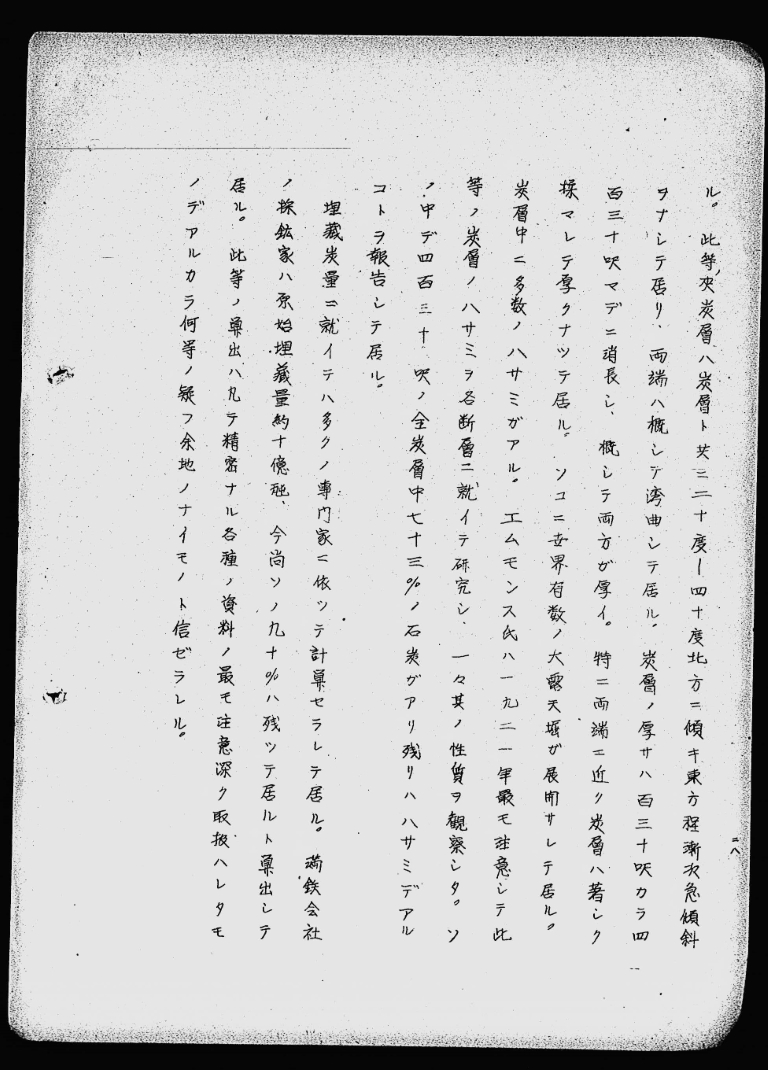 ル。此等夾炭層ハ炭層ト共ニ二十度ー四十度北方ニ傾キ東方程漸次急傾斜
ヲナシテ居リ、両端ハ概シテ湾曲シテ居ル。炭層ノ厚サハ百三十呎カラ四
百三十呎マデニ消長シ、概シテ両方ガ厚イ。特ニ両端ニ近ク炭層ハ著シク
揉マレテ厚クナツテ居ル。ソコニ世界有数ノ大露天堀ガ展開サレテ居ル。
炭層中ニ多数ノハサミガアル。エムモンス氏ハ一九二一年最モ注意シテ此
等ノ炭層ノハサミヲ各断層ニ就イテ研究シ、一々其ノ性質ヲ観察シタ。ソ
ノ中デ四百三十呎ノ全炭層中七十三%ノ石炭ガアリ残リハハサミデアル
コトヲ報告シテ居ル。
埋藏炭量ニ就イテハ多クノ専門家ニ依ツテ計算セラレテ居ル。満鉄会社
ノ採鉱家ハ原始埋藏量約十億瓲、今尚ソノ九十%ハ残ツテ居ルト算出シテ
居ル。此等ノ算出ハ凡テ精密ナル各種ノ資料ノ最モ注意深ク取扱ハレタモ
ノデアルカラ何等ノ疑フ余地ノナイモノト信ゼラレル。
二八